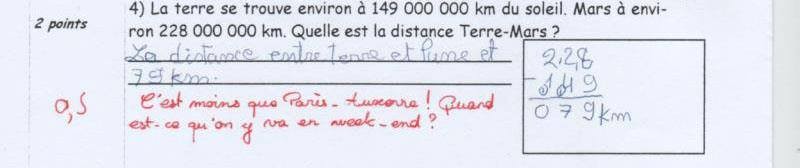 4) La terre se trouve environ à 149 000 000 km du soleil. Mars à envi-
2 points
ron 228 000 000 km. Quelle est la distance Terre-Mars ?
La distance entre terre et lune et
79 km.
228
- 149
079 km
0,5
C'est moins que Paris - Auxerre ! Quand
est-ce qu'on y va en week-end ?